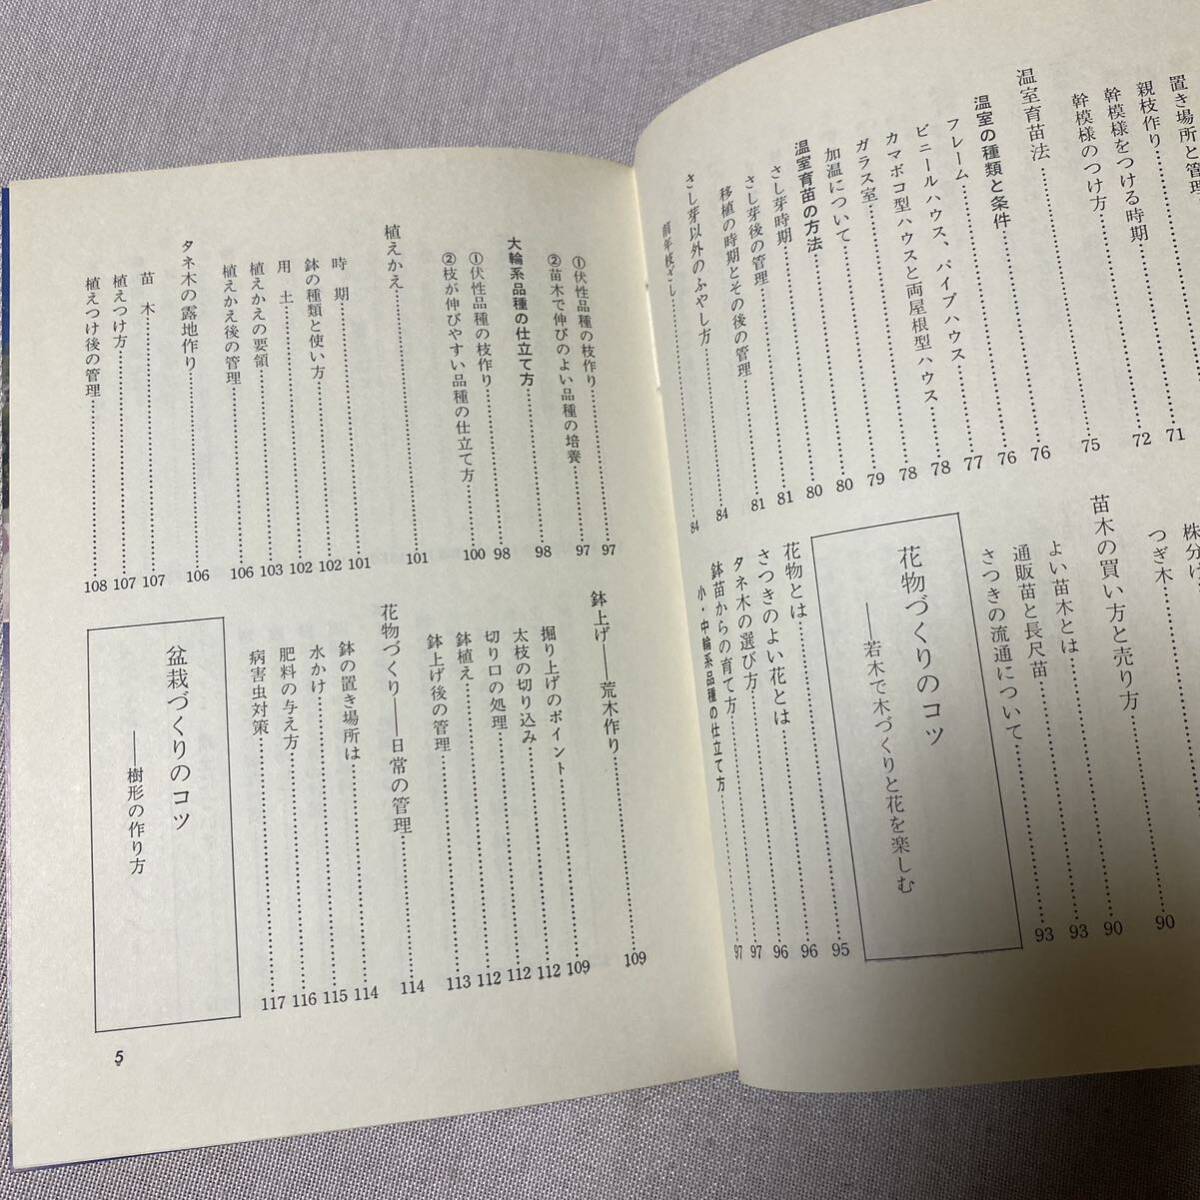 置き場所と管理
親枝作り
幹模様をつける時期……71
幹模様のつけ方……72
温室育苗法……75
温室の種類と条件……76
フレーム……76
ビニールハウス、パイプハウス……77
カマボコ型ハウスと両屋根型ハウス……78
ガラス室……78
加温について……79
温室育苗の方法……80
さし芽時期……80
さし芽後の管理……81
移植の時期とその後の管理……81
さし芽以外のふやし方……84
前年枝ざし……84
株分け
つぎ木
苗木の買い方と売り方……90
よい苗木とは……90
通販苗と長尺苗……93
さつきの流通について……93
花物づくりのコツ
――若木で木づくりと花を楽しむ
花物とは……95
さつきのよい花とは……96
タネ木の選び方……96
鉢苗からの育て方……97
小・中輪系品種の仕立て方……97
①伏性品種の枝作り……97
②苗木で伸びのよい品種の培養……97
大輪系品種の仕立て方……98
①伏性品種の枝作り……98
②枝が伸びやすい品種の仕立て方……100
植えかえ……101
時期……101
鉢の種類と使い方……102
用土……102
植えかえの要領……103
植えかえ後の管理……106
タネ木の露地作り……106
苗木……107
植えつけ方……107
植えつけ後の管理……108
鉢上げ――荒木作り……109
掘り上げのポイント……109
太枝の切り込み……112
切り口の処理……112
鉢植え……112
鉢上げ後の管理……113
花物づくり――日常の管理……114
鉢の置き場所は……114
水かけ……115
肥料の与え方……116
病害虫対策……117
盆栽づくりのコツ
――樹形の作り方
5